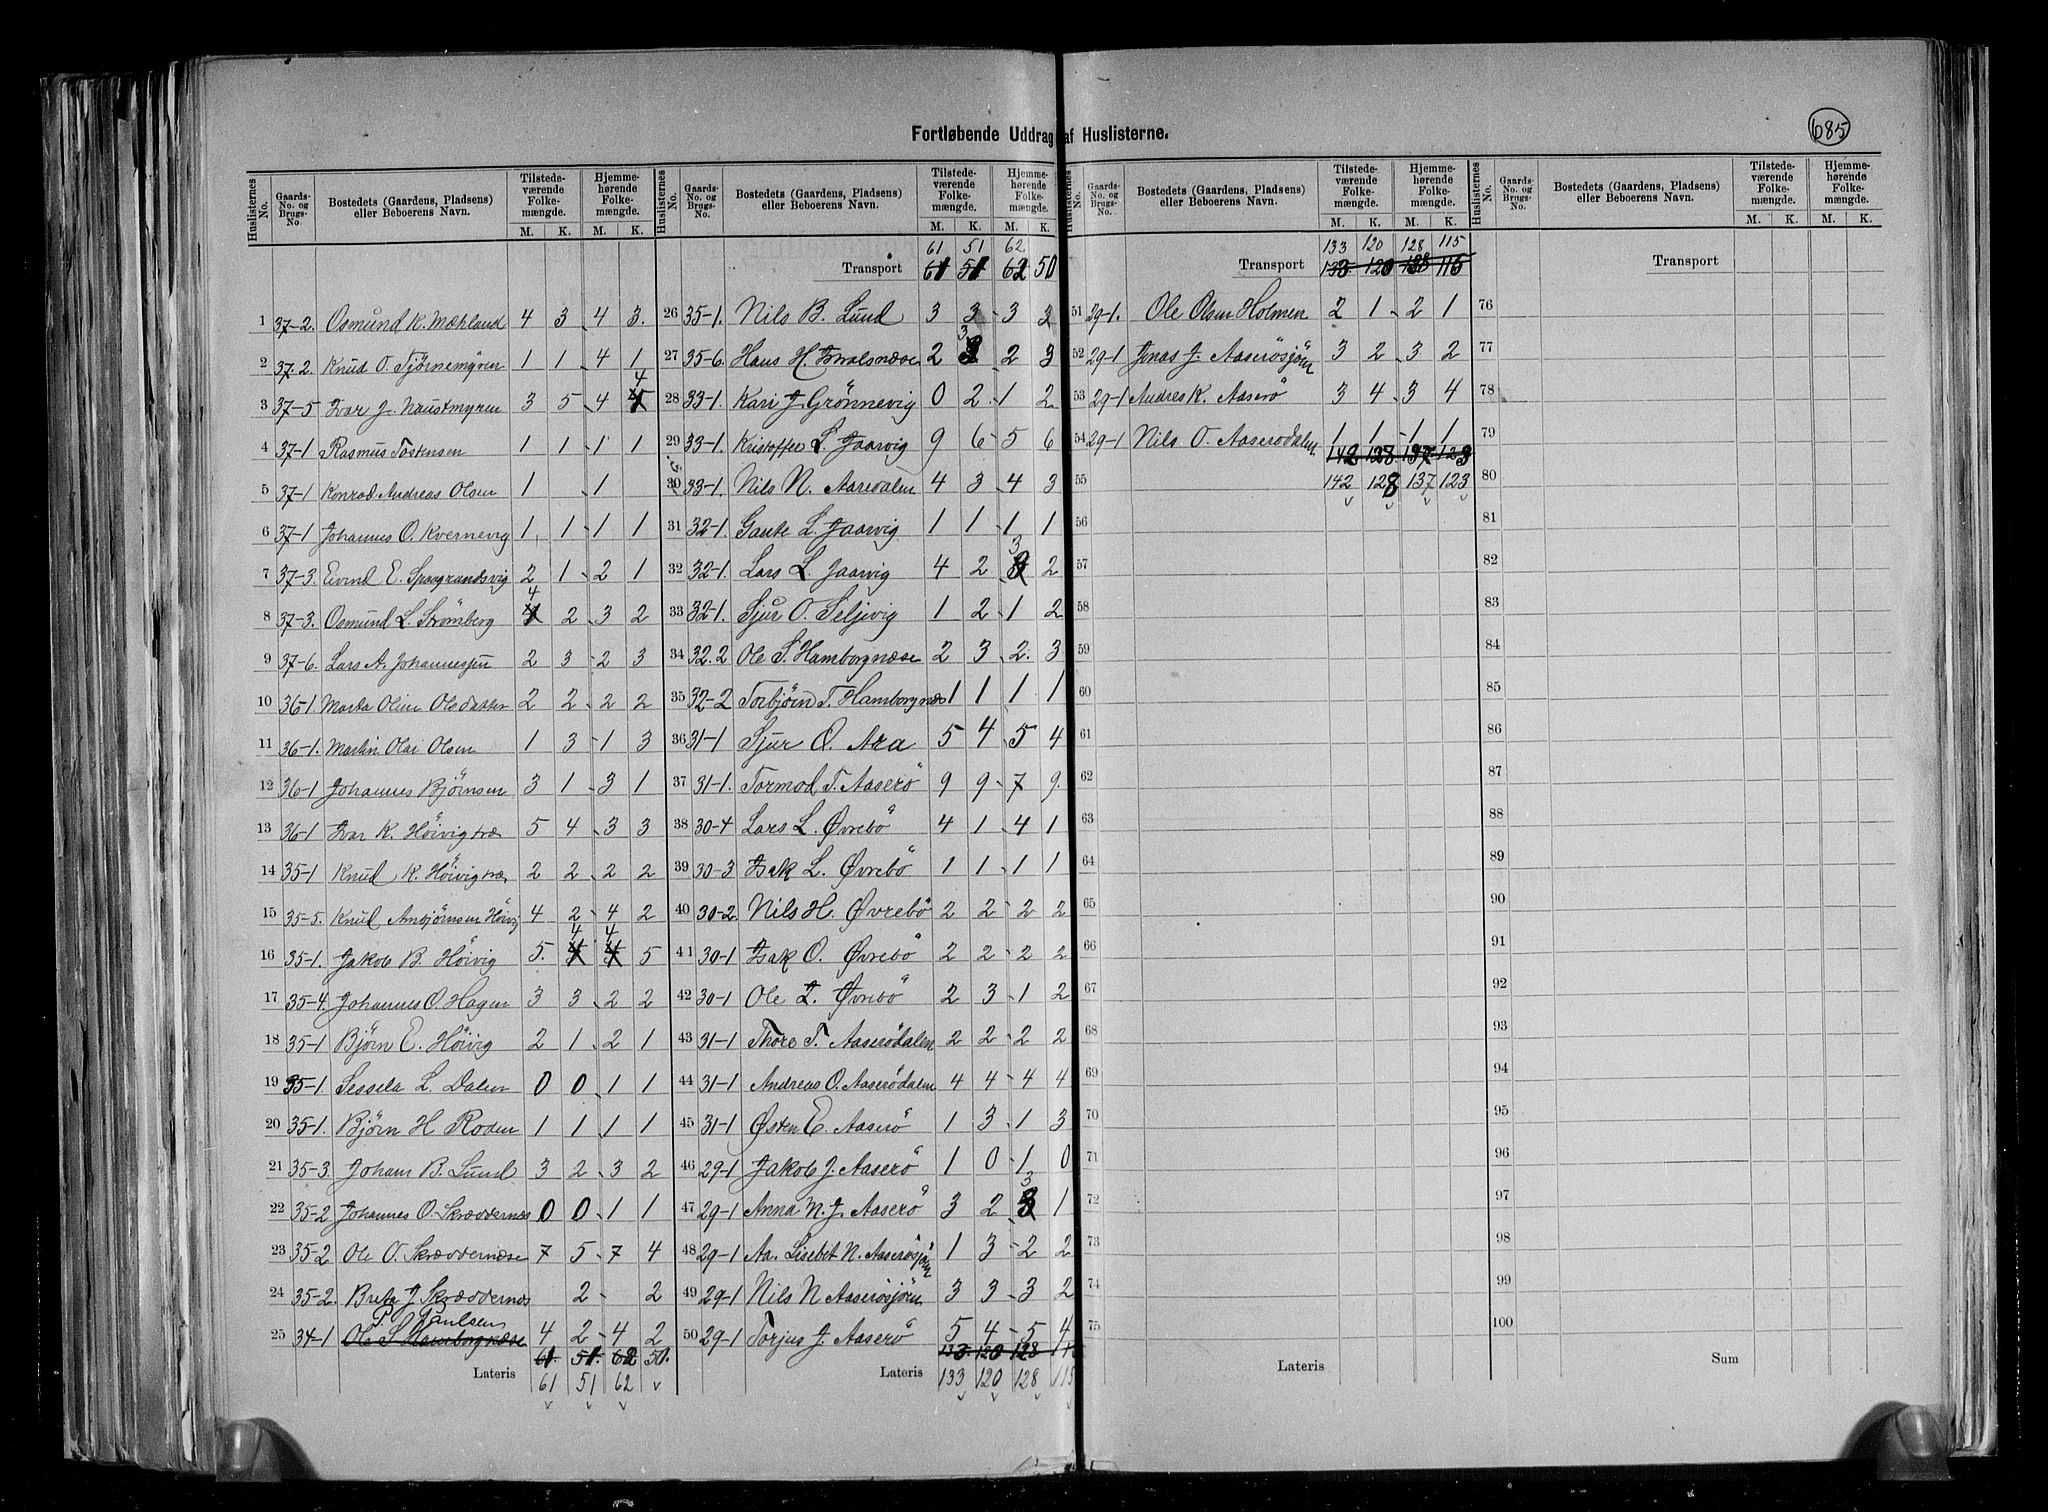 685
Fortløbende Uddrag af Huslisterne.
Huslisternes No. Gaards-No. og Brugs-No. Bostedets (Gaardens, Pladsens) eller Beboerens Navn. Tilstedeværende Folkemængde. M. K. Hjemmehørende Folkemængde. M. K.
1 37-2. Osmund K. Mæhland 4 3 - 4 3.
2 37-2. Knud O. Tjörnemyren 1 1 - 4 1
3 37-5 Ivar J. Naustmyren 3 5 - 4 4
4 37-1 Rasmus Tostensen 1 1 - 1 1
5 37-1 Konrad Andreas Olsen 1 1
6 37-1 Johannes O. Kvernevig 1 1 - 1 1
7 37-3. Eivind E. Spaagrundsvig 2 1 - 2 1
8 37-3. Osmund L. Strömberg 4 2 - 3 2
9 37-6. Lars A. Johannessen 2 3 - 2 3
10 36-1 Marta Oline Olsdatter 2 2 - 2 2
11 36-1. Martin Olai Olsen 1 3 - 1 3
12 36-1 Johannes Bjørnsen 3 1 - 3 1
13 36-1 Ivar K. Höivigtræ 5 4 - 3 3
14 35-1 Knud K. Höivigtræ 2 2 - 2 2
15 35-5. Knud Anbjørnsen Höivig 4 2 - 4 2
16 35-1. Jakob B. Höivig 5. 4 4 5
17 35-4. Johannes O. Hagen 3 3 - 2 2
18 35-1 Bjørn E. Höivig 2 1 - 2 1
19 35-1 Sessela L. Dalen 0 0 - 1 1
20 35-1. Bjørn H. Roden 1 1 1 1
21 35-3. Johans B. Lund 3 2 - 3 2
22 35-2 Johannes O. Skræddernes 0 0 - 1 1
23 35-2 Ole O. Skræddernæse 7 5 - 7 4
24 35-2. Breta J. Skræddernes 2 - 2
25 34-1 P. Paulsen Ole S Hamborgnæse 4 2 - 4 2
61 51 62 50.
Lateris 61 51 62
Huslisternes No. Gaards-No. og Brugs-No. Bostedets (Gaardens, Pladsens) eller Beboerens Navn. Tilstedeværende Folkemængde. M. K. Hjemmehørende Folkemængde. M. K.
61 51 62
Transport 61 51 62 50
26 35-1. Nils B. Lund 3 3 - 3 3
27 35-6. Hans H. 2 3 2 3
28 33-1. Kari J. Grönnevig 0 2 - 1 2
29 33-1. Kristoffer L. Jaarvig 9 6 - 5 6
30 33-1. Nils N. 4 3 - 4 3
31 32-1. Gaute L. Jaarvig 1 1 - 1 1
32 32-1. Lars L. Jaarvig 4 2 - 3 2
33 32-1. Sjur O. Seljevig 1 2 - 1 2
34 32.2 Ole S. Hamborgnæse 2 3 - 2. 3
35 32-2 Torbjørn T. Hamborgnæs 1 1 1 1
36 31-1 Sjur O. Ara 5 4 - 5 4
37 31-1. Tormod T. Aaserö 9 9 - 7 9.
38 30-4 Lars L. Øvrebö 4 1 - 4 1
39 30-3 Isak L. Øvrebö 1 1 - 1 1
40 30-2. Nils H. Øvrebö 2 2 - 2 2
41 30-1 Isak O. Øvrebö 2 2 - 2 2
42 30-1 Ole I. Øvrebö 2 3 - 1 2
43 31-1 Thore T. Aaserödalen 2 2 - 2 2
44 31-1 Andreas O. Aaserödalen 4 4 - 4 4
45 31-1 Østen E. Aaserö 1 3 - 1 3
46 29-1 Jakob J. Aaserö 1 0 - 1 0
47 29-1 Anna N. J. Aaserö 3 2 - 3 1
48 29-1 Aa. Lisebet N. Aaserösjöen 1 3 - 2 2
49 29-1 Nils N Aaserösjöen 3 3 - 3 2
50 29-1 Torjus J. Aaserö 5 4 - 5 4
133 120 128
Lateris 133 120 128 115
Huslisternes No. Gaards-No. og Brugs-No. Bostedets (Gaardens, Pladsens) eller Beboerens Navn. Tilstedeværende Folkemængde. M. K. Hjemmehørende Folkemængde. M. K.
133 120 128 115
Transport 133 120 138 115
51 29-1. Ole Olsen Holmen 2 1 - 2 1
52 29-1 Jonas J. Aaserösjöen 3 2 - 3 2
53 29-1 Andres K. Aaserö 3 4 - 3 4
54 29-1 Nils O. Aaserödalen 1 1 - 1 1
142 128 137 123
55 142 128 137 123
56
57
58
59
60
61
62
63
64
65
66
67
68
69
70
71
72
73
74
75
Lateris
Huslisternes No. Gaards-No. og Brugs-No. Bostedets (Gaardens, Pladsens) eller Beboerens Navn. Tilstedeværende Folkemængde. M. K. Hjemmehørende Folkemængde. M. K.
Transport
76
77
78
79
80
81
82
83
84
85
86
87
88
89
90
91
92
93
94
95
96
97
98
99
100
Sum